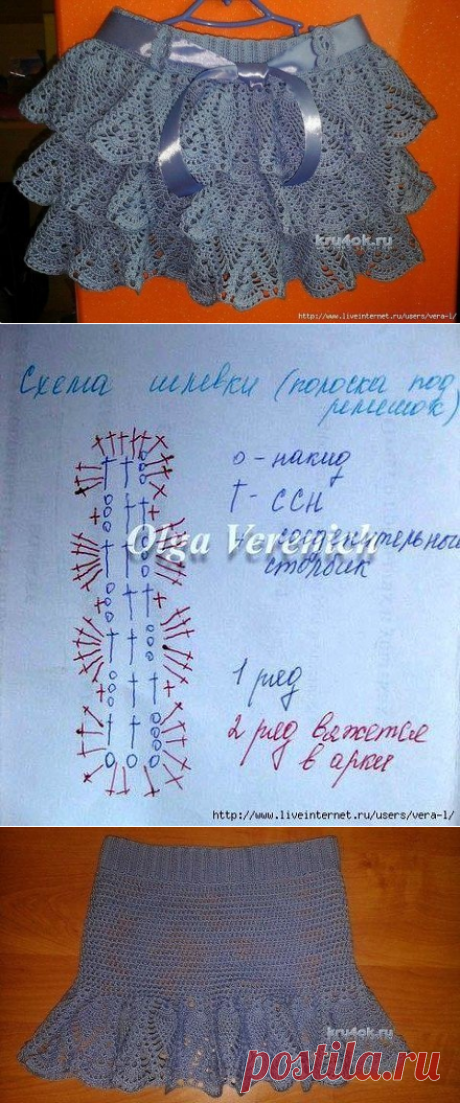 kru4ok.ru
http://www.liveinternet.ru/users/vera-l/
Схема шлевки (полоска под
ремешок)
о - накид
† - ССН
Olga Verenich
+ - соединительный
столбик
1 ряд
2 ряд вяжется
в арки
http://www.liveinternet.ru/users/vera-l/
kru4ok.ru
postila.ru